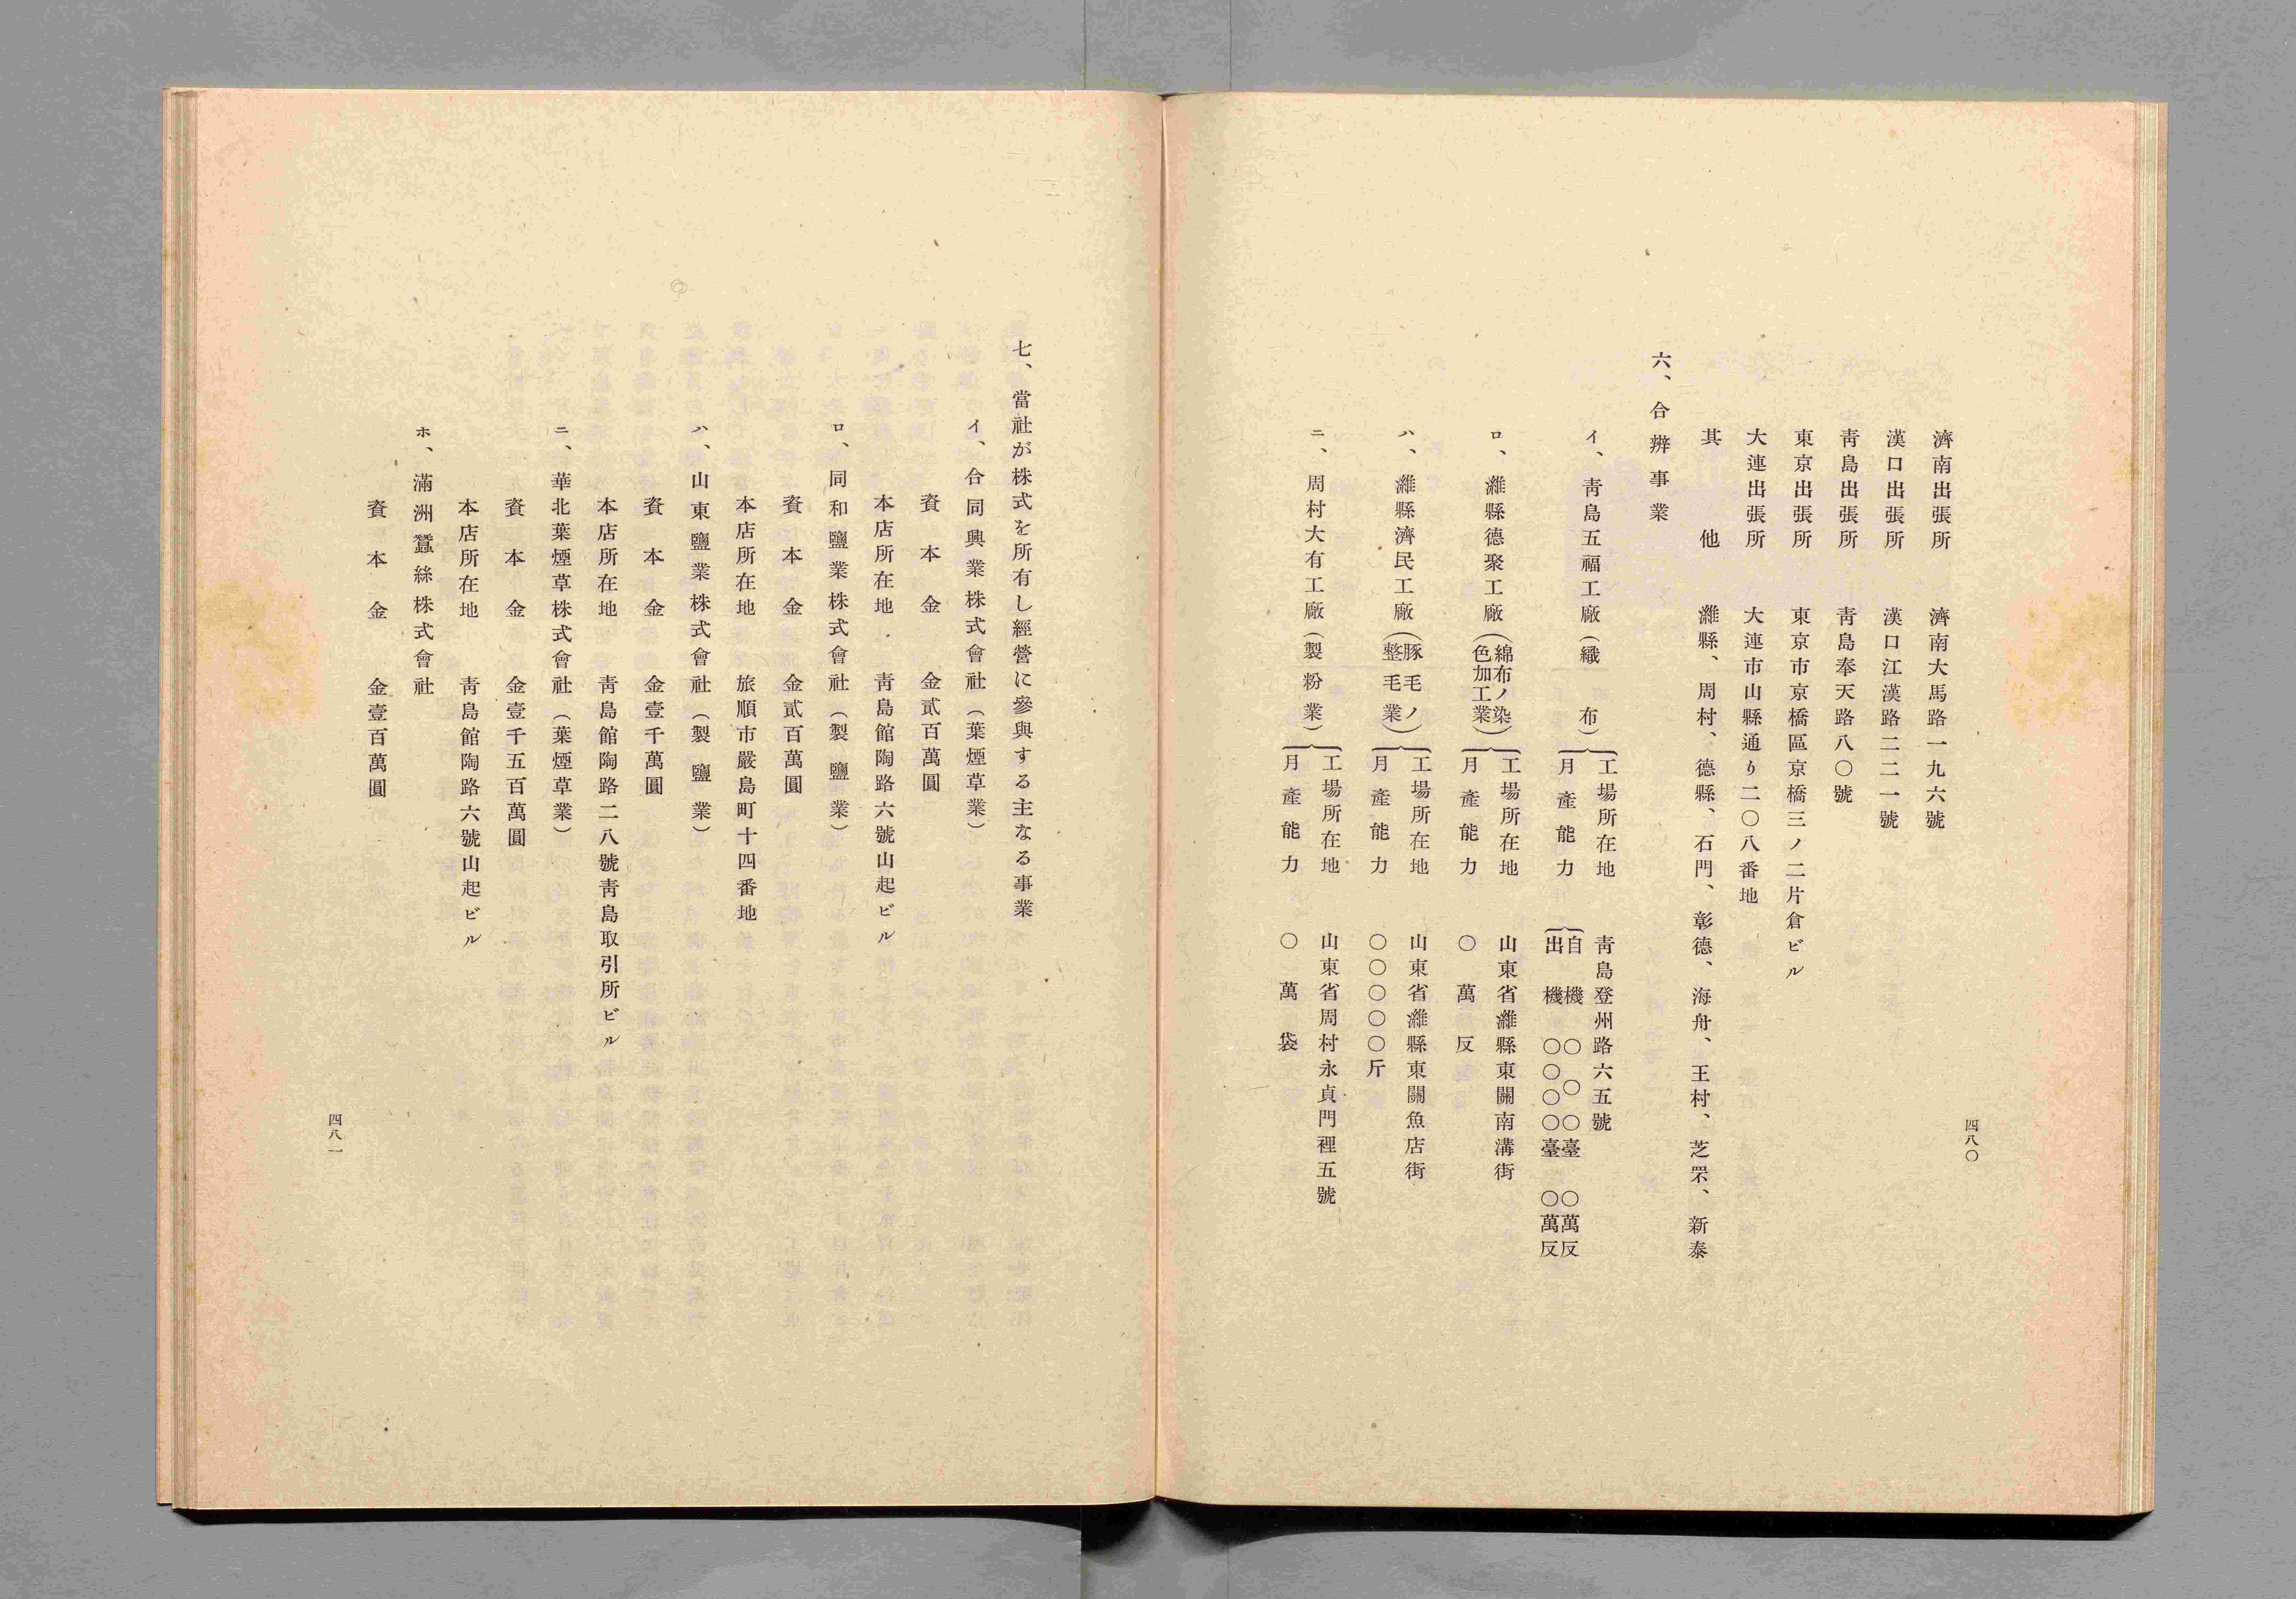 濟南出張所　濟南大馬路一九六號
漢口出張所　漢口江漢路二二一號
靑島出張所　靑島奉天路八〇號
東京出張所　東京市京橋區京橋三ノ二片倉ビル
大連出張所　大連市山縣通り二〇八番地
其他　濰縣、周村、德縣、石門、彰德、海舟、王村、芝罘、新泰
六、合辦事業
イ、靑島五福工廠（織布）
工場所在地　靑島登州路六五號
月產能力
自機　〇〇〇臺　〇萬反
出機　〇〇〇〇臺　〇萬反
ロ、濰縣德聚工廠（綿布ノ染色加工業）
工場所在地　山東省濰縣東關南溝街
月產能力　〇萬反
ハ、濰縣濟民工廠（豚毛ノ整毛業）
工場所在地　山東省濰縣東關魚店街
月產能力　〇〇〇〇〇斤
ニ、周村大有工廠（製粉業）
工場所在地　山東省周村永貞門裡五號
月產能力　〇萬袋
四八〇
七、當社が株式を所有し經營に參與する主なる事業
イ、合同興業株式會社（葉煙草業）
資本金　金貳百萬圓
本店所在地　靑島館陶路六號山起ビル
ロ、同和鹽業株式會社（製鹽業）
資本金　金貳百萬圓
本店所在地　旅順市嚴島町十四番地
ハ、山東鹽業株式會社（製鹽業）
資本金　金壹千萬圓
本店所在地　靑島館陶路二八號靑島取引所ビル
ニ、華北葉煙草株式會社（葉煙草業）
資本金　金壹千五百萬圓
本店所在地　靑島館陶路六號山起ビル
ホ、滿洲蠶絲株式會社
資本金　金壹百萬圓
四八一